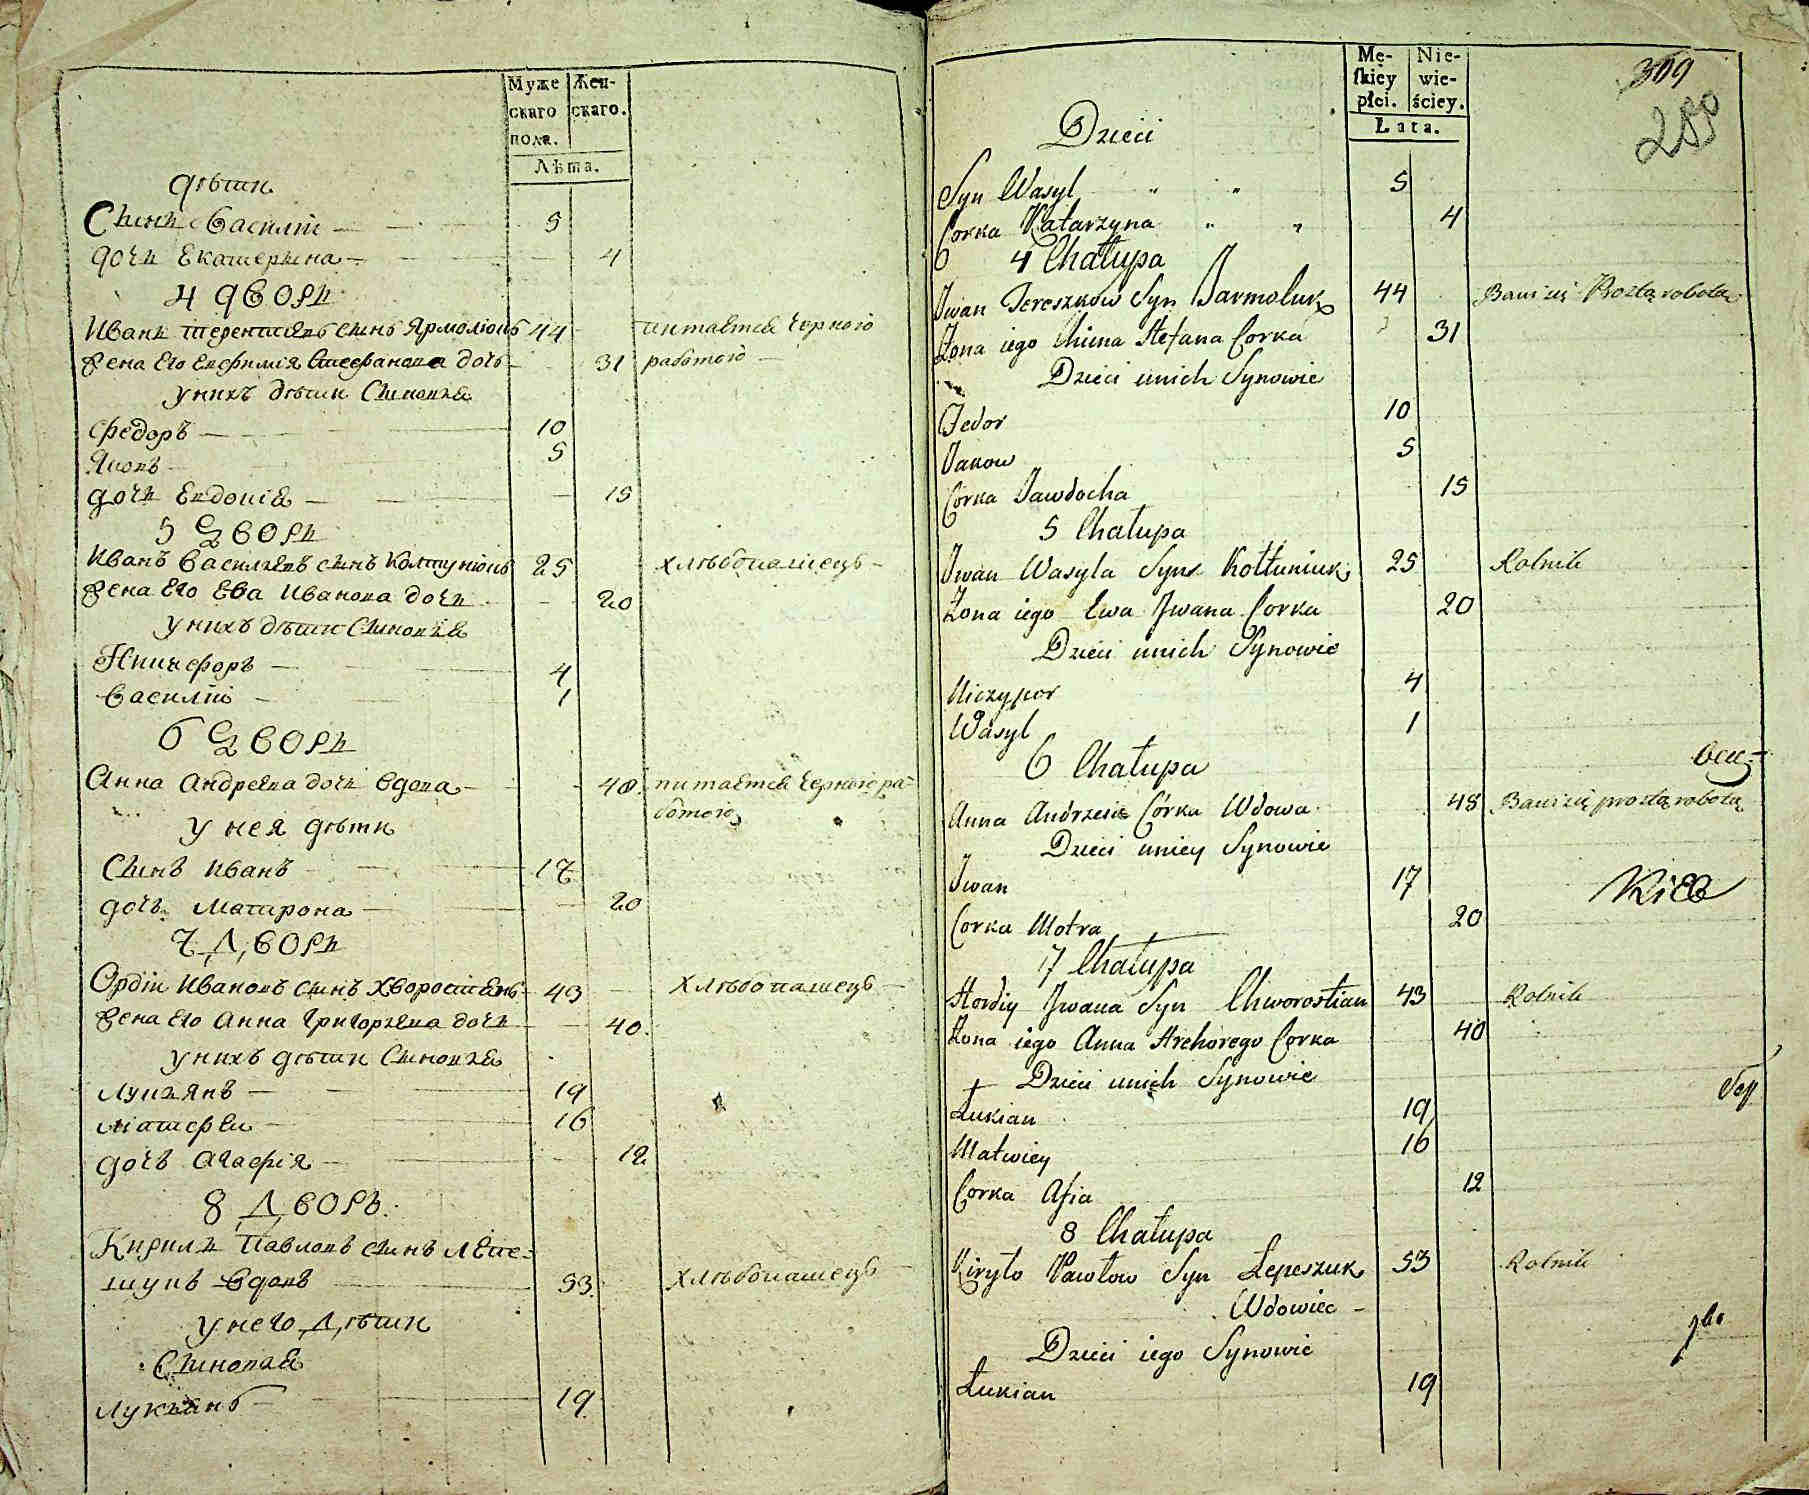 Муже
скаго
пола.
Жен-
скаго.
Лѣта.
дѣти
Сынъ Василій 5
дочь Екатерина 4
4 дворъ
Иванъ Терентіевъ сынъ Ярмолюкъ 44 питается чорною
Жена его Евфимія Стефанова дочь 31 работою
у нихъ дѣти Сыновья
Федоръ 10
Яковъ 5
дочь Евдокія 15
5 дворъ
Иванъ Васильевъ сынъ Колтунюкъ 25 хлѣбопашецъ
Жена его Ева Иванова дочь 20
у нихъ дѣти Сыновья
Никифоръ 4
Василій 1
6 дворъ
Анна Андреева дочь вдова 48 питается чорною ра-
ботою
у нея дѣти
Сынъ Иванъ 17
дочь Матрона 20
7 дворъ
Ордій Ивановъ сынъ Хворостянъ 43 хлѣбопашецъ
Жена его Анна Григорьева дочь 40
у нихъ дѣти Сыновья
Лукьянъ 19
Матфей 16
дочь Агафія 12
8 дворъ
Кирилъ Павловъ сынъ Лепе-
шукъ вдовъ 53 хлѣбопашецъ
у него дѣти
Сыновья
Лукьянъ 19
Mę-
skiey
płci.
Nie-
wie-
ściey.
Lata.
309
Dzieci
Syn Wasyl " " 5
Corka Katarzyna " " 4
4 Chałupa
Jwan Tereszkow Syn Jarmoluk 44 Bawi się Prostą robotą
Żona iego Chima Stefana Corka 31
Dzieci unich Synowie
Fedor 10
Jakow 5
Córka Jawdocha 15
5 Chałupa
Jwan Wasyla Syn Kołtuniuk 25 Rolnik
Żona iego Ewa Jwana Corka 20
Dzieci unich Synowie
Niczypor 4
Wasyl 1
6 Chałupa
Anna Andrzeia Córka Wdowa 48 Bawi się prostą robotą
Dzieci uniey Synowie
Jwan 17
Corka Motra 20
7 Chałupa
Hordiy Jwana Syn Chworostian 43 Rolnik
Żona iego Anna Hrehorego Corka 40
Dzieci unich Synowie
Łukian 19
Matwiey 16
Corka Afia 12
8 Chałupa
Kiryło Pawłow Syn Lepeszuk 53 Rolnik
Wdowiec
Dzieci iego Synowie
Łukian 19